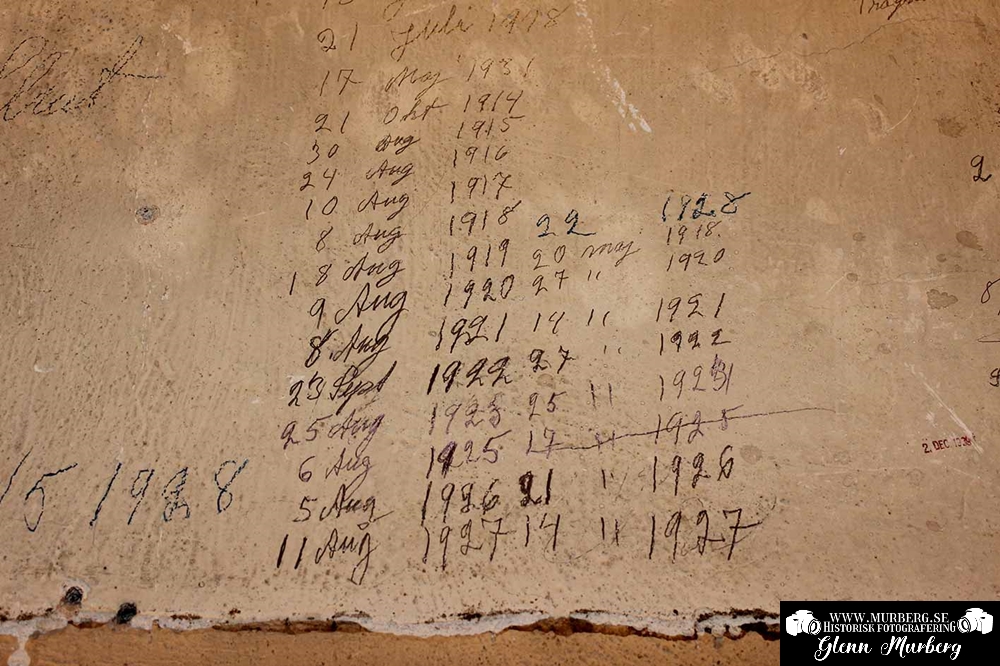 21 Juli 1918
17 Maj 1931
21 Okt 1914
30 Aug 1915
24 Aug 1916
10 Aug 1917
8 Aug 1918 22 1928
18 Aug 1919 20 maj 1918
9 Aug 1920 27 " 1920
8 Aug 1921 14 " 1921
23 Sept 1922 27 " 1922
25 Aug 1923 25 " 1923
6 Aug 1925 17 " 1925
5 Aug 1926 21 " 1926
11 Aug 1927 14 " 1927
15 1928
2
8
2. DEC 1936
WWW.MURBERG.SE
HISTORISK FOTOGRAFERING
Glenn Murberg